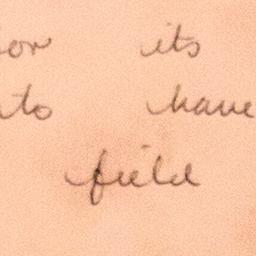 for its
to have
field